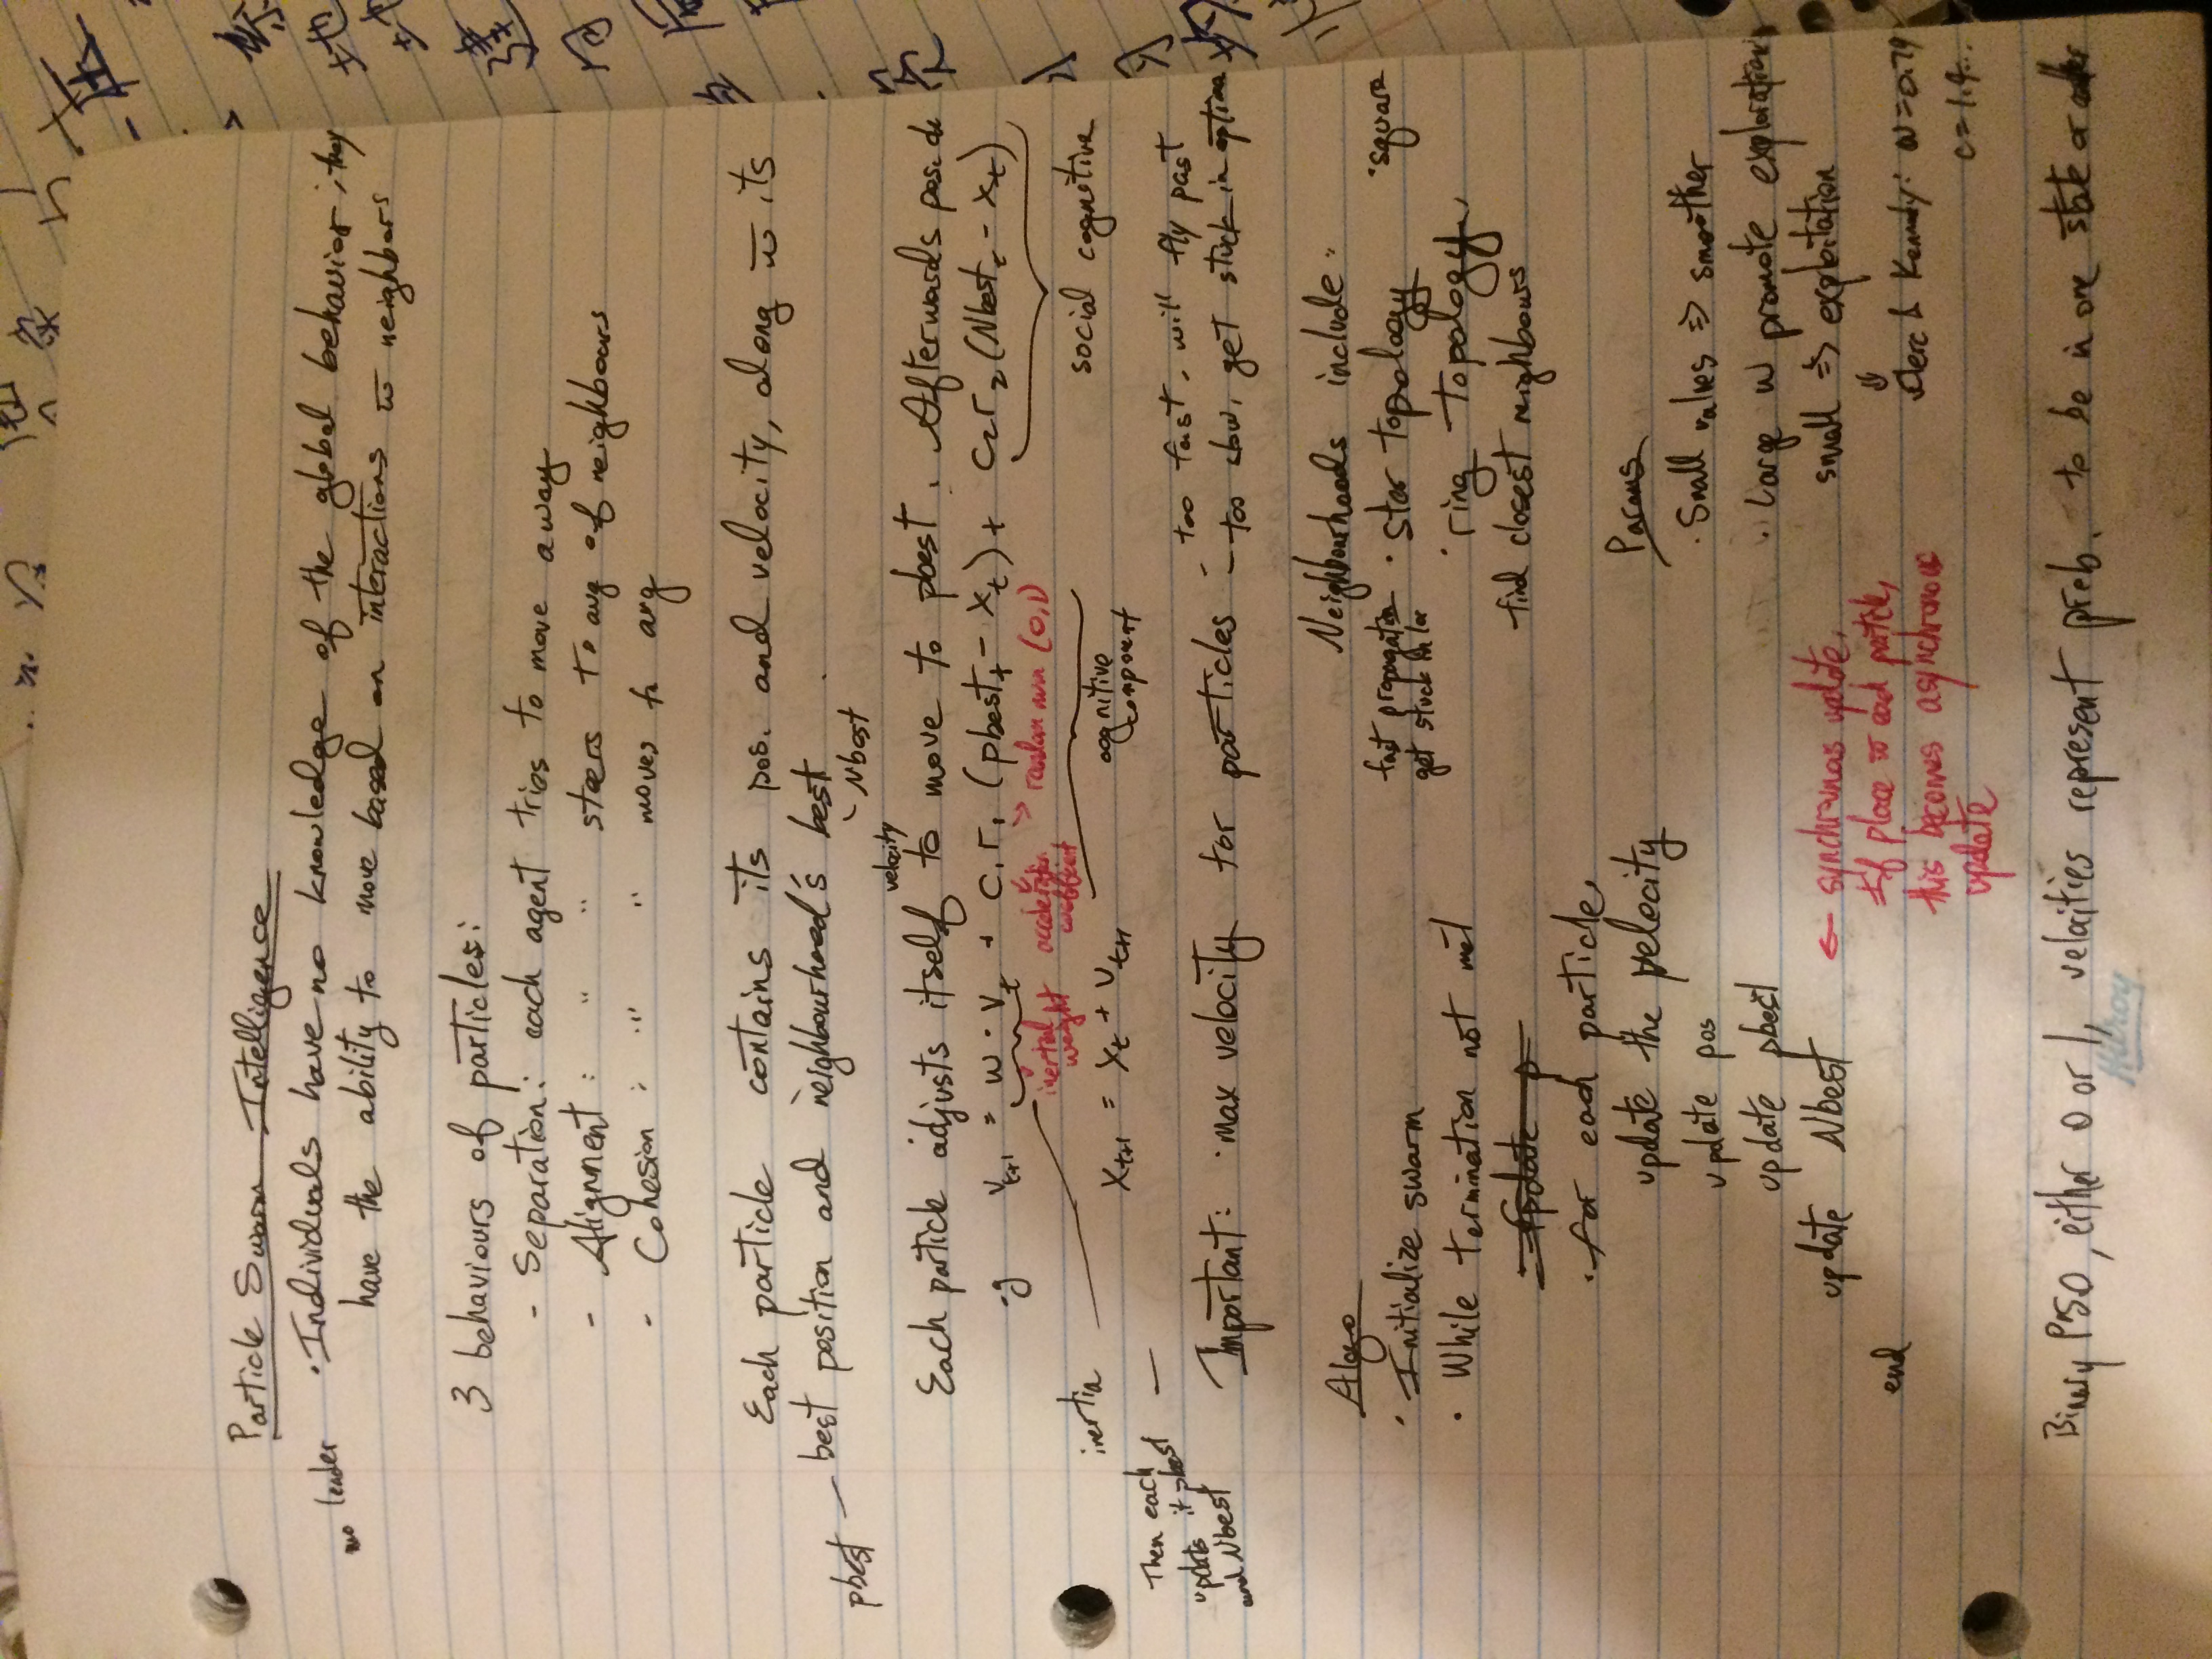 Particle Swarm Intelligence
no leader
· Individuals have no knowledge of the global behavior; they
have the ability to move based on interactions w̅ neighbors
3 behaviours of particles:
- Separation: each agent tries to move away
- Alignment: " " steers to avg of neighbours
- Cohesion: " " moves to avg
Each particle contains its pos. and velocity, along w̅ its
best position and neighbourhood's best
pbest
Nbest
velocity
Each particle adjusts itself to move to pbest. Afterwards pos.
v_{t+1} = w · v_t + c_1 r_1 (pbest_t - x_t) + c_2 r_2 (Nbest_t - x_t)
inertial weight
acceleration coefficient
random num (0,1)
inertia
social cognitive
x_{t+1} = x_t + v_{t+1}
cognitive component
Then each
updates it pbest
and Nbest
Important: · max velocity for particles
- too fast, will fly past
- too slow, get stuck in optima
Algo
· Initialize swarm
· While termination not met
- Update p
· for each particle,
update the velocity
update pos
update pbest
update Nbest
← synchronous update,
If place w̅ each particle,
this becomes asynchronous
update
end
Neighbourhoods include:
fast propagation
get stuck in loc
· star topology
· square
· ring topology
find closest neighbours
Params
· Small values => smoother
· Large w promote exploration
small => exploitation
⇓
Clerc & Kennedy: w=0.79
c=1.4...
Binary PSO, either 0 or 1, velocities represent prob. to be in one state or other
Hilroy